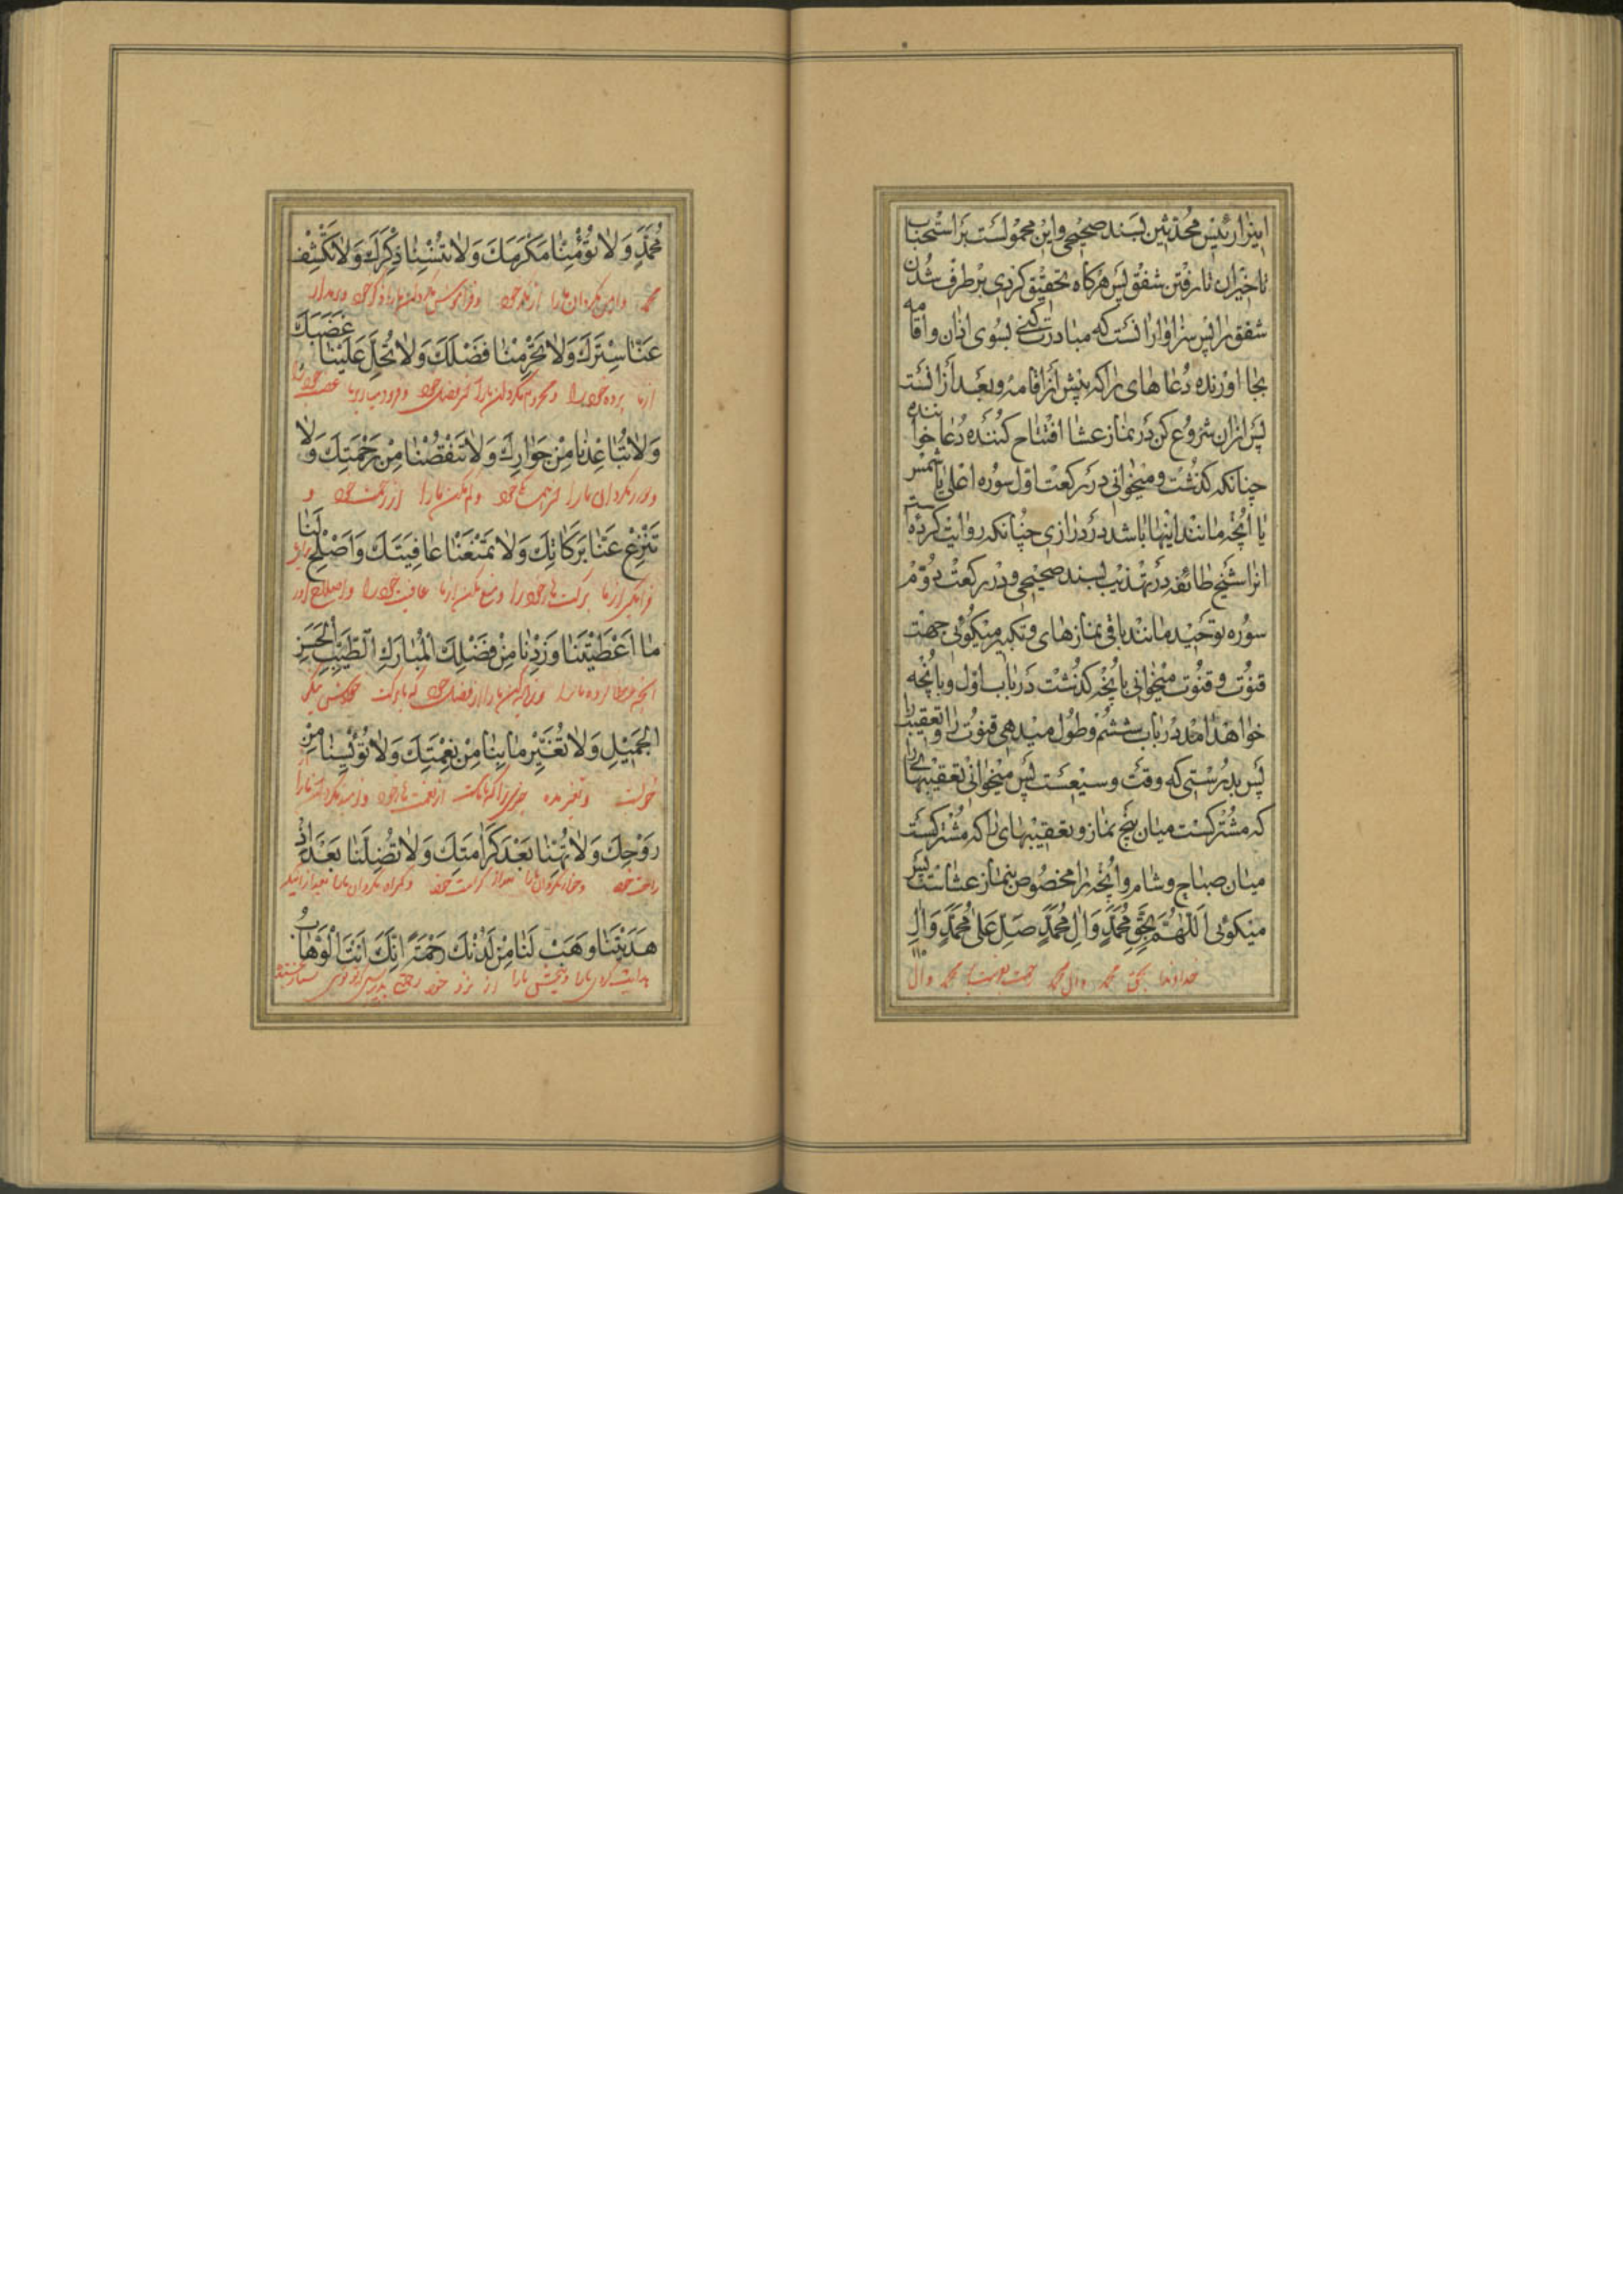 اینرا رئیس محدثین بسند صحیح و این محمولست بر استحباب
تاخیران تا رفتن شفق پس هرکاه تحقیق کردی برطرف شدن
شفق را پس سزاوار انست که مبادرت کنی بسوی اذان و اقامه
بجا اورنده دعاهای را که پیش از اقامه و بعد از انست
پس ازان شروع کن در نماز عشا افتتاح کننده دعا خواننده
چنانکه کذشت و میخوانی در رکعت اول سوره اعلی یا شمس
یا انچه مانند اینها باشد در درازی چنانکه روایت کرده است
انرا شیخ طائفه در تهذیب بسند صحیح و در رکعت دوّم
سوره توحید مانند باقی نمازهای و تکبیر میکوئی جهت
قنوت و قنوت میخوانی بانچه کذشت در باب اول و بانچه
خواهد امد در باب ششم و طول میدهی قنوت را و تعقیب را
پس بدرستی که وقت وسیعست پس میخوانی تعقیبهای را
که مشترکست میان پنج نماز و تعقیبهای را که مشترکست
میان صباح و شام و انچه را مخصوص بنماز عشاست پس
میکوئی اَللّٰهُمَّ بِحَقِّ مُحَمَّدٍ وَاٰلِ مُحَمَّدٍ صَلِّ عَلٰی مُحَمَّدٍ وَاٰلِ
خداوندا بحق محمد وال محمد رحمت بفرست بر محمد وال
مُحَمَّدٍ وَلاٰ تُؤْمِنّٰا مَكْرَكَ وَلاٰ تُنْسِنٰا ذِكْرَكَ وَلاٰ تَكْشِفْ
محمد و ایمن مکردان ما را از مکر خود و فراموش مکردان ما را ذکر خود و
عَنّٰا سِتْرَكَ وَلاٰ تَحْرِمْنٰا فَضْلَكَ وَلاٰ تُحِلَّ عَلَيْنٰا غَضَبَكَ
از ما پرده خود را و محروم مکردان ما را از فضل خود و فرود میاور بر ما غضب خود را
وَلاٰ تُبٰاعِدْنٰا مِنْ جَوٰارِكَ وَلاٰ تَنْقُصْنٰا مِنْ رَحْمَتِكَ وَلاٰ
و دور مکردان ما را و کم مکن ما را از رحمت خود و
تَنْزِعْ عَنّٰا بَرَكٰاتِكَ وَلاٰ تَمْنَعْنٰا عٰافِيَتَكَ وَاَصْلِحْ لَنٰا
از ما برکت های خود را و منع مکن از ما عافیت خود را و اصلاح اور
مٰا اَعْطَيْتَنٰا وَزِدْنٰا مِنْ فَضْلِكَ الْمُبٰارَكِ الطَّيِّبِ الْحَسَنِ
انچه عطا کرده ما را و زیاده کن ما را از فضل خود که با برکت
الْجَمِيْلِ وَلاٰ تُغَيِّرْ مٰا بِنٰا مِنْ نِعْمَتِكَ وَلاٰ تُؤْيِسْنٰا مِنْ
و تغیر مده چیزی را که با ماست از نعمت های خود و نومید مکردان ما را
رَوْحِكَ وَلاٰ تُهِنّٰا بَعْدَ كَرٰامَتِكَ وَلاٰ تُضِلَّنٰا بَعْدَ اِذْ
راحت خود و خوار مکردان ما را بعد از کرامت خود و کمراه مکردان ما را بعد از انکه
هَدَيْتَنٰا وَهَبْ لَنٰا مِنْ لَدُنْكَ رَحْمَةً اِنَّكَ اَنْتَ الْوَهّٰابُ
هدایت کردی ما را و ببخش ما را از نزد خود رحمتی بدرستی که توئی بسیار بخشنده